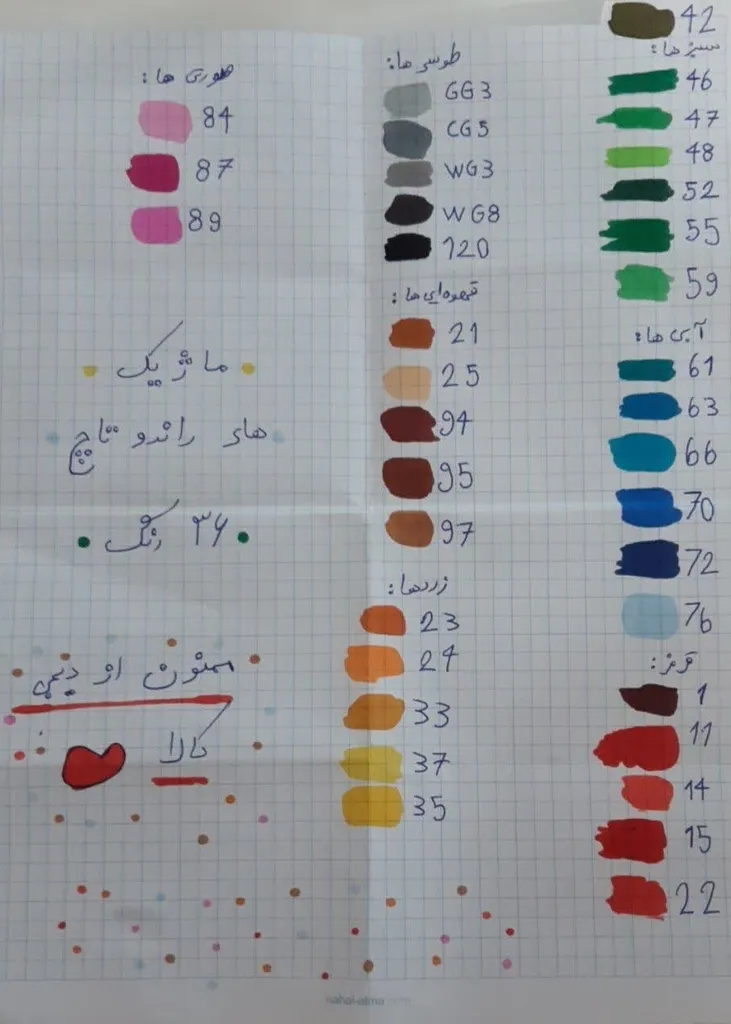 42
سبزها:
46
47
48
52
55
59
آبی ها:
61
63
66
70
72
76
قرمز:
1
11
14
15
22
طوسی ها:
GG3
CG5
WG3
WG8
120
قهوه‌ای‌ها:
21
25
94
95
97
زردها:
23
24
33
37
35
صورتی ها:
84
87
89
ماژیک
های راندو تاچ
۳۶ رنگ
ممنون از دیجی
کالا